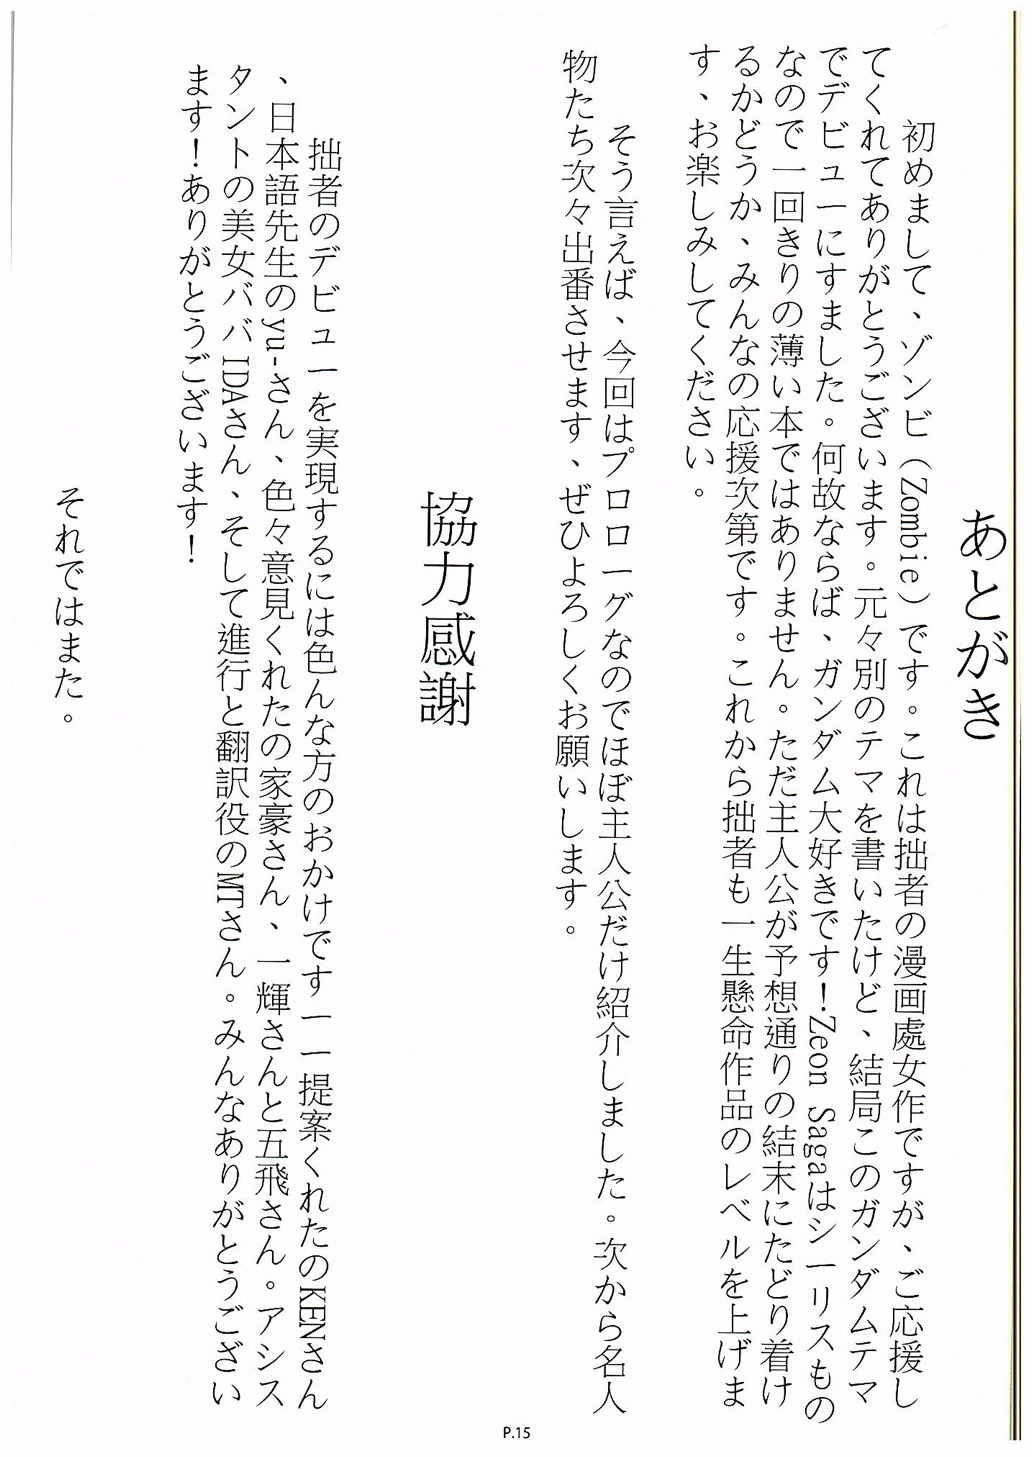 あとがき
初めまして、ゾンビ（Zombie）です。これは拙者の漫画處女作ですが、ご応援し
てくれてありがとうございます。元々別のテマを書いたけど、結局このガンダムテマ
でデビューにすました。何故ならば、ガンダム大好きです！Zeon Sagaはシーリスもの
なので一回きりの薄い本ではありません。ただ主人公が予想通りの結末にたどり着け
るかどうか、みんなの応援次第です。これから拙者も一生懸命作品のレベルを上げま
す、お楽しみしてください。
そう言えば、今回はプロローグなのでほぼ主人公だけ紹介しました。次から名人
物たち次々出番させます、ぜひよろしくお願いします。
協力感謝
拙者のデビューを実現するには色んな方のおかけですーー提案くれたのKENさん
、日本語先生のyu-さん、色々意見くれたの家豪さん、一輝さんと五飛さん。アシス
タントの美女ババIDAさん、そして進行と翻訳役のMTさん。みんなありがとうござい
ます！ありがとうございます！
それではまた。
P.15